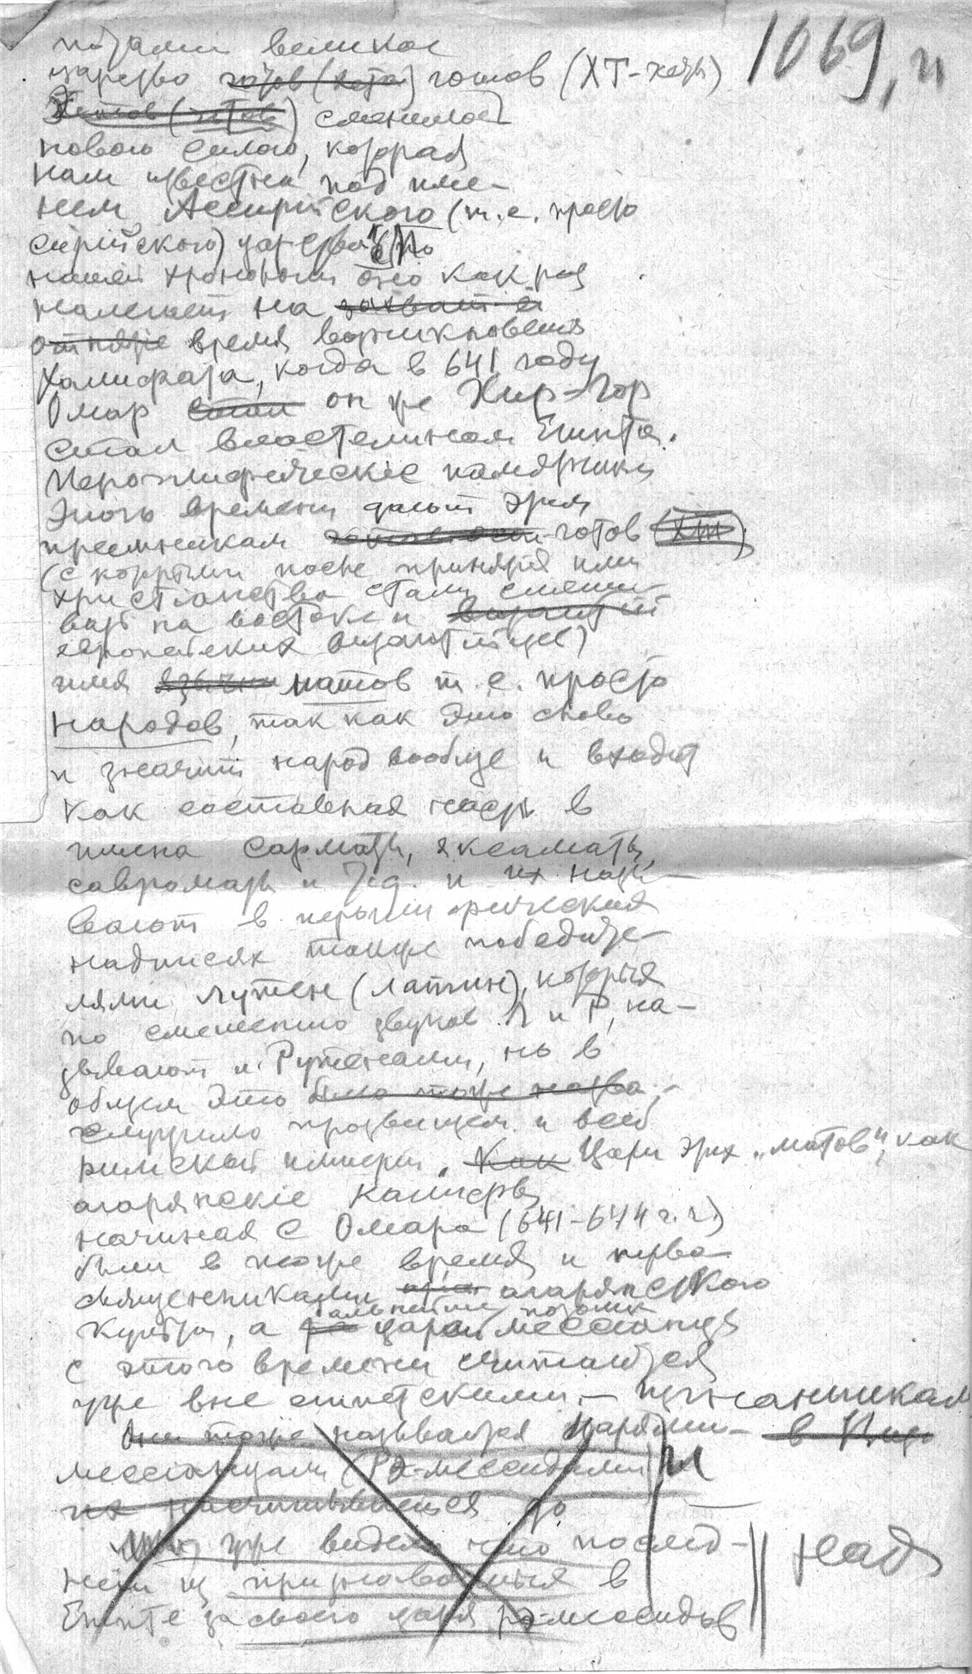 1069, и
великое
царство готов (хета) готов (ХТ-хеты)
сменилось
новою силою, которая
нам известна под име-
нем Ассирійского (т.е. просто
сирійского) царства. По
нашей хронологіи оно как раз
налегает на захват и
время возникновенія
Халифата, когда в 641 году
Омар стал он же Хир-Гор
стал властелином Египта.
Иероглифическіе памятники
этого времени дают этим
преемникам готов (ХТ)
(с которыми после принятія ими
христіанства стали смеши-
вать на востоке и византій
европейских византійцев)
имя матов т.е. просто
народов, так как это слово
и значит народ вообще и входит
как составная часть в
имена сарматы, яксаматы,
савроматы и т.д. и их назы-
вают в іероглифических
надписях также победите-
лями лутен (латин), которыя
по смешенію звуков Л и Р, на-
зывают и Рутенами, но в
общем это было тоже назва-
служило прозвищем и всей
римской имперіи. Как Цари этих „матов", как
агарянскіе калифы
начиная с Омара (641-644 г.г.)
были в тоже время и перво-
священниками агарянского
культа, а дальнейшіе потомки царей мессіанцев
с этого времени считаются
уже вне египетскими –
Они тоже называются царями-
мессіанцами (Рэ-мессидами) и
их насчитывается до
уже видели что послед-
ній признавался в
Египте за своего царя рэ-мессидов
надо